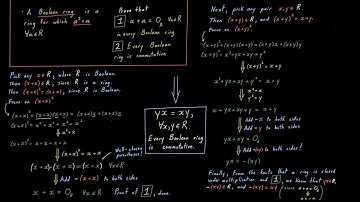 • A Boolean ring is a
ring for which a²=a
∀a∈R
Prove that
1 a+a = 0_R ∀a∈R
in every Boolean ring
2 Every Boolean
ring is commutative
Pick any x∈R, where R is Boolean.
Then (x+x)∈R, since R is a ring.
Then (x+x)² = (x+x), since R is Boolean.
Focus on (x+x)²
(x+x)² = (x+x)(x+x) = (x+x)x + (x+x)x
= x² + x² + x² + x²
a² = a
= x + x + x + x
(x+x)² = x+x
Well-chosen
parentheses!
(x+x) + (x+x) = (x+x) ∀x∈R
Add -(x+x) to both sides
x + x = 0_R ∀x∈R
Proof of 1, done.
yx = xy,
∀x,y∈R.
Every Boolean ring
is commutative.
Next, pick any pair x,y∈R.
Then (x+y)∈R, and (x+y)² = x+y.
Focus on (x+y)².
(x+y)² = x+y
x² = x
y² = y
x + yx + xy + y = x + y
Add -x to both sides
Add -y to both sides!
yx + xy = 0_R
Add -(xy) to both sides
yx = -(xy)
Finally, from the facts that a ring is closed
under multiplication and 1, we know that yx∈R